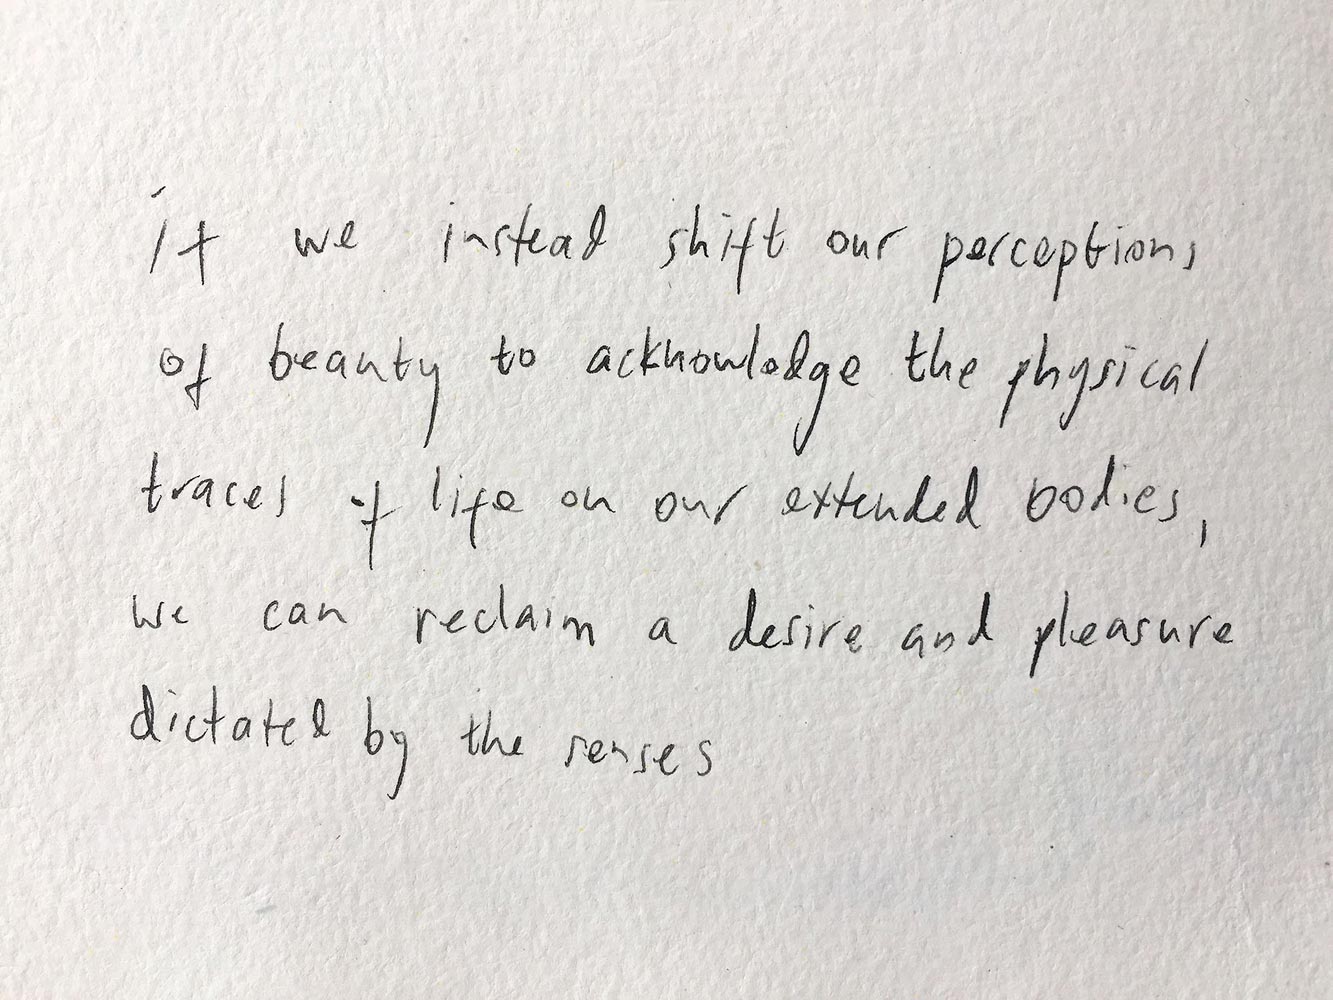 if we instead shift our perceptions
of beauty to acknowledge the physical
traces of life on our extended bodies,
we can reclaim a desire and pleasure
dictated by the senses